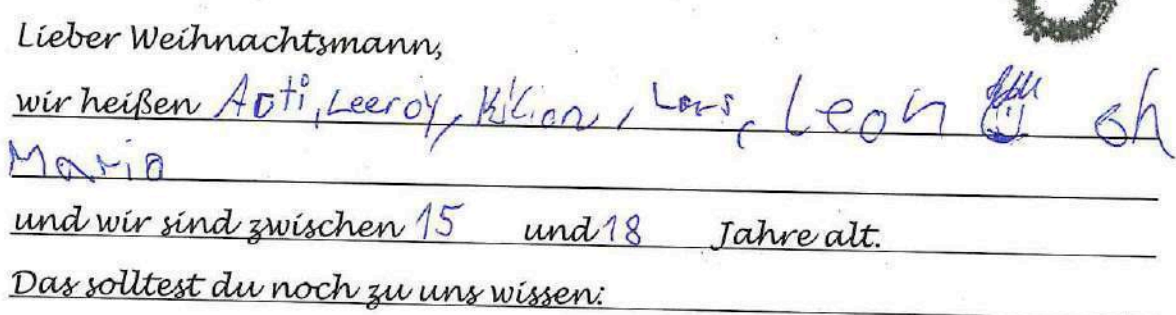 Lieber Weihnachtsmann,
wir heißen Arti, Leeroy, Kilian, Lars, Leon
Mario
und wir sind zwischen 15 und 18 Jahre alt.
Das solltest du noch zu uns wissen: